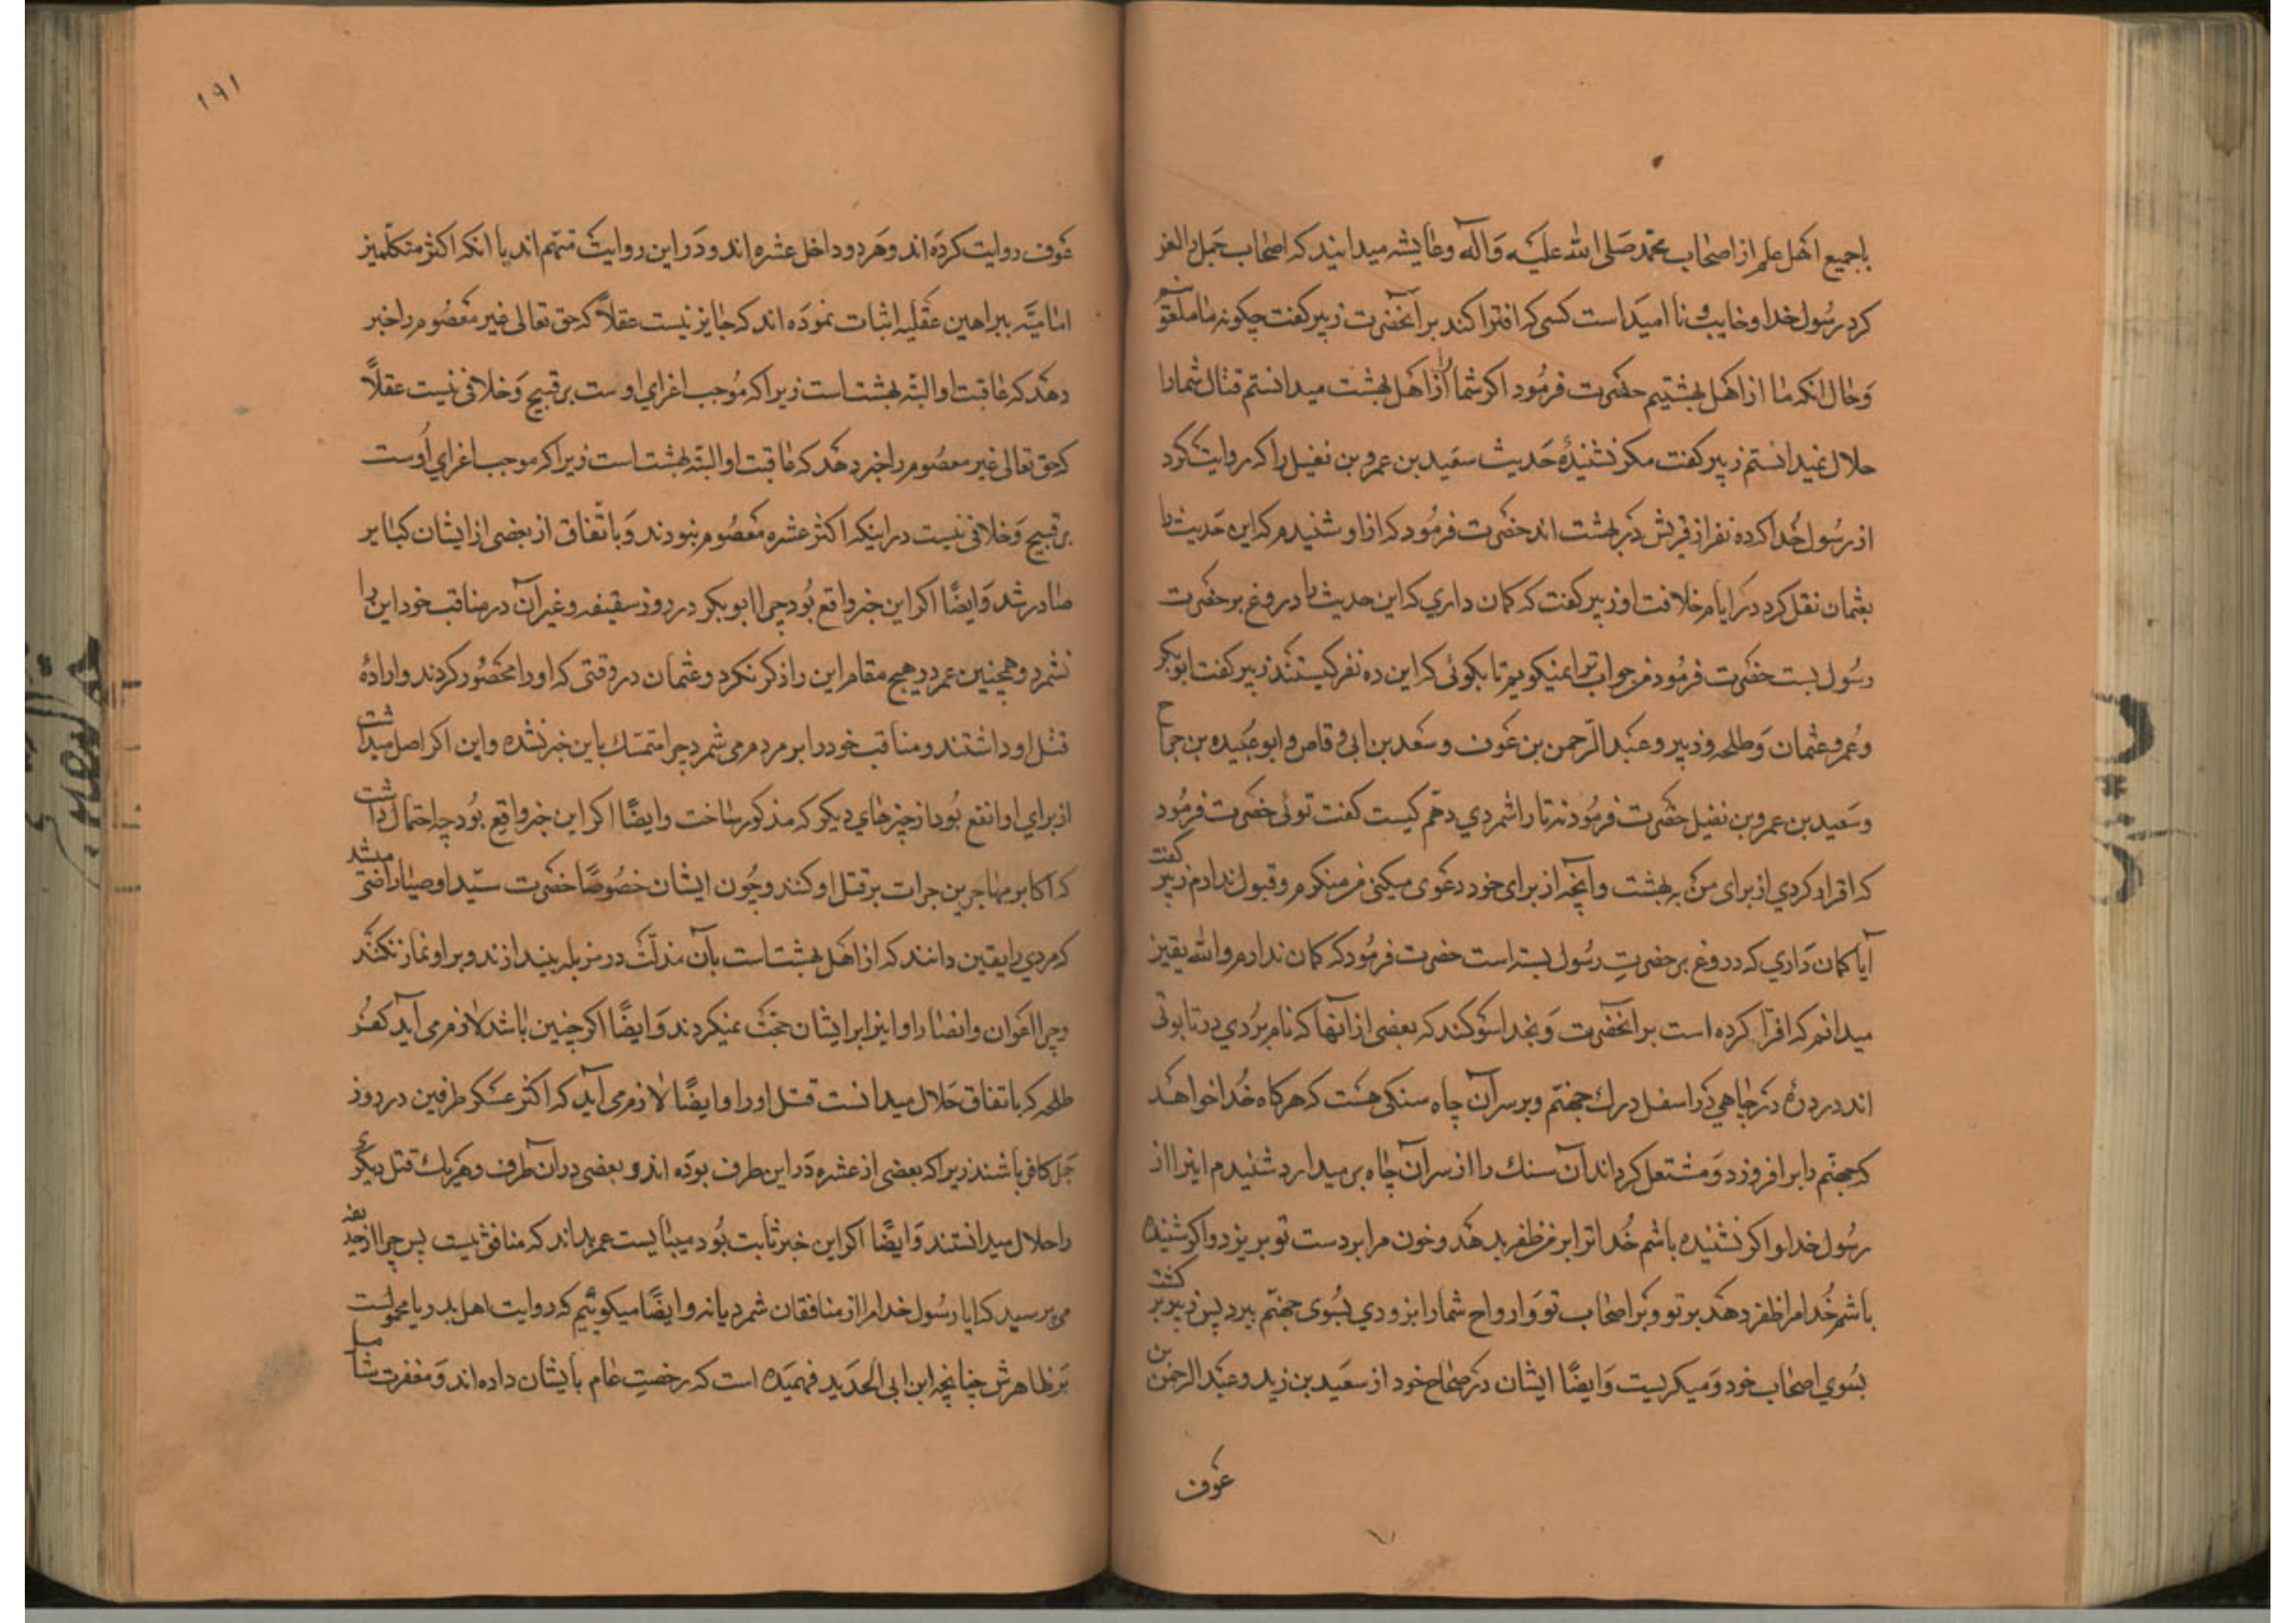 باجمیع اهل علم از اصحاب محمد صلی الله علیه و آله و عایشه میدانید که اصحاب جمل را لعن
کرد رسول خدا و خایب و نا امید است کسی که افترا کند بر آنحضرت زبیر کفت چکونه ما ملعونیم
و حال آنکه ما از اهل بهشتیم حضرت فرمود اکر شما را از اهل بهشت میدانستم قتال شما را
حلال نمیدانستم زبیر کفت مکر نشنیدهٔ حدیث سعید بن عمرو بن نفیل را که روایت کرد
از رسول خدا که ده نفر از قریش در بهشت اند حضرت فرمود که از او شنیدم که این حدیث را
بعثمان نقل کرد در ایام خلافت او زبیر کفت که کمان داری که این حدیث را دروغ بر حضرت
رسول بست حضرت فرمود من جواب ترا نمیکویم تا بکوئی که این ده نفر کیستند زبیر کفت ابوبکر
و عمر و عثمان و طلحه و زبیر و عبد الرحمن بن عوف و سعد بن ابی وقاص و ابو عبیده بن جراح
و سعید بن عمرو بن نفیل حضرت فرمود نه تا را شمردی دهم کیست کفت توئی حضرت فرمود
که اقرار کردی از برای من به بهشت و آنچه از برای خود دعوی میکنی من منکرم و قبول ندارم زبیر کفت
آیا کمان داری که دروغ بر حضرت رسول بسته است حضرت فرمود که کمان ندارم والله یقین
میدانم که افترا کرده است بر انحضرت و بخدا سوکند که بعضی از آنها که نام بردی در تابوتی
اند در درهٔ در چاهی در اسفل درک جهنم و بر سر آن چاه سنکی هست که هرکاه خدا خواهد
که جهنم را بر افروزد و مشتعل کرداند آن سنک را از سر آن چاه بر میدارد شنیدم اینرا از
رسول خدا و اکر نشنیده باشم خدا ترا بر من ظفر بدهد و خون مرا بر دست تو بریزد و اکر شنیده
باشم خدا مرا ظفر دهد بر تو و بر اصحاب تو و ارواح شما را بزودی بسوی جهنم ببرد پس زبیر بر کشت
بسوی اصحاب خود و میکریست و ایضًا ایشان در صحاح خود از سعید بن زید و عبد الرحمن بن
عوف
۱۹۱
عوف روایت کرده اند و هر دو داخل عشره اند و در این روایت متهم اند با انکه اکثر متکلمین
امامیّه ببراهین عقلیه اثبات نموده اند که جایز نیست عقلاً که حق تعالی غیر معصوم را خبر
دهد که عاقبت او البته بهشت است زیرا که موجب اغرای اوست بر قبیح و خلافی نیست عقلاً
که حق تعالی غیر معصوم را خبر دهد که عاقبت او البته بهشت است زیرا که موجب اغرای اوست
بر قبیح و خلافی نیست در اینکه اکثر عشره معصوم نبودند و باتفاق از بعضی از ایشان کبایر
صادر شد و ایضًا اکر این خبر واقع بود چرا ابو بکر در روز سقیفه و غیر آن در مناقب خود این را
نشمرد و همچنین عمر در هیچ مقام این را ذکر نکرد و عثمان در وقتی که او را محصور کردند و ارادهٔ
قتل او داشتند و مناقب خود را بر مردم می شمرد چرا متمسک باین خبر نشده و این اکر اصل میداشت
از برای او انفع بود از چیزهای دیکر که مذکور ساخت و ایضًا اکر این خبر واقع بود چه احتمال داشت
که اکابر مهاجرین جرات بر قتل او کنند و چون ایشان خصوصًا حضرت سیّد اوصیا راضی میشد
که مردی را یقین دانند که از اهل بهشت است بآن مذلّت در مزبله بیندازند و بر او نماز نکنند
و چرا اعوان و انصار او اینرا بر ایشان حجّت نمیکردند و ایضًا اکر چنین باشد لازم می آید کفر
طلحه که باتفاق حلال میدانست قتل او را و ایضًا لازم می آید که اکثر عسکر طرفین در روز
جمل کافر باشند زیرا که بعضی از عشره در این طرف بوده اند و بعضی در آن طرف و هریک قتل دیکری
را حلال میدانستند و ایضًا اکر این خبر ثابت بود میبایست عمر بداند که منافق نیست پس چرا از حذیفه
می پرسید که ایا رسول خدا مرا از منافقان شمرد یا نه و ایضًا میکوئیم که روایت اهل بدر یا محمولست
بر ظاهرش چنانچه ابن ابی الحدید فهمیده است که رخصت عام بایشان داده اند و مغفرت شامل